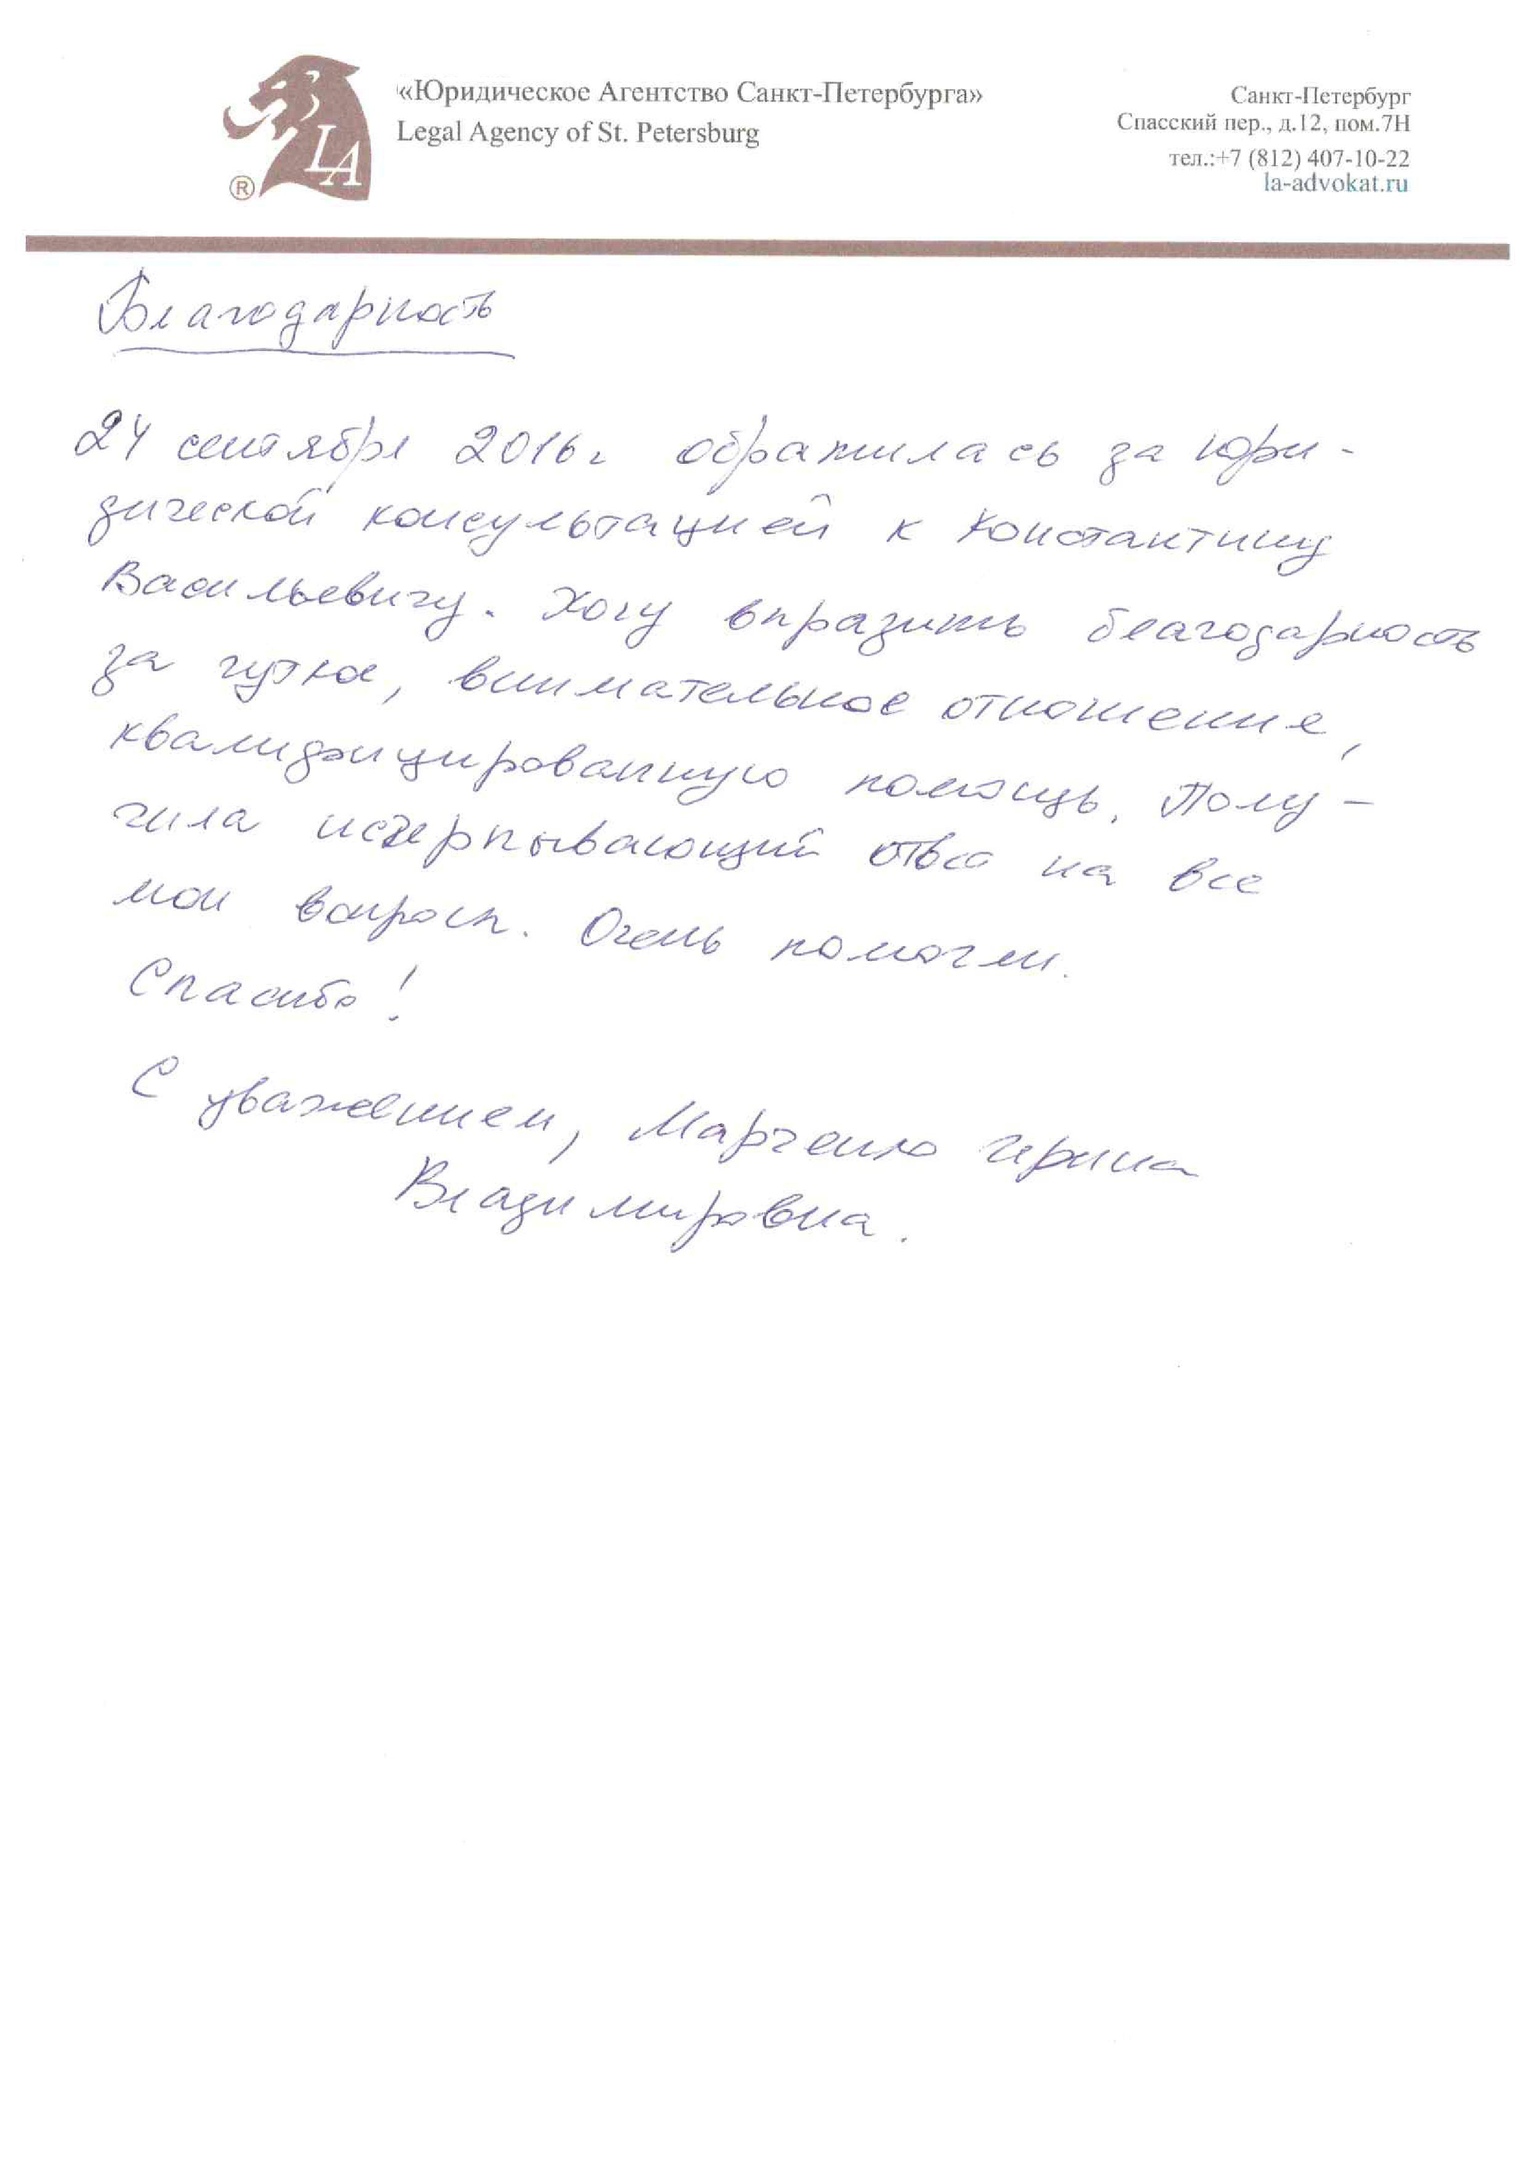 «Юридическое Агентство Санкт-Петербурга»
Legal Agency of St. Petersburg
Санкт-Петербург
Спасский пер., д.12, пом.7Н
тел.:+7 (812) 407-10-22
la-advokat.ru
LA
®
Благодарность
24 сентября 2016г обратилась за юри-
дической консультацией к Константину
Васильевичу. Хочу выразить благодарность
за чуткое, внимательное отношение,
квалифицированную помощь. Полу-
чила исчерпывающий ответ на все
мои вопросы. Очень помогли.
Спасибо!
С уважением, Марченко Ирина
Владимировна.